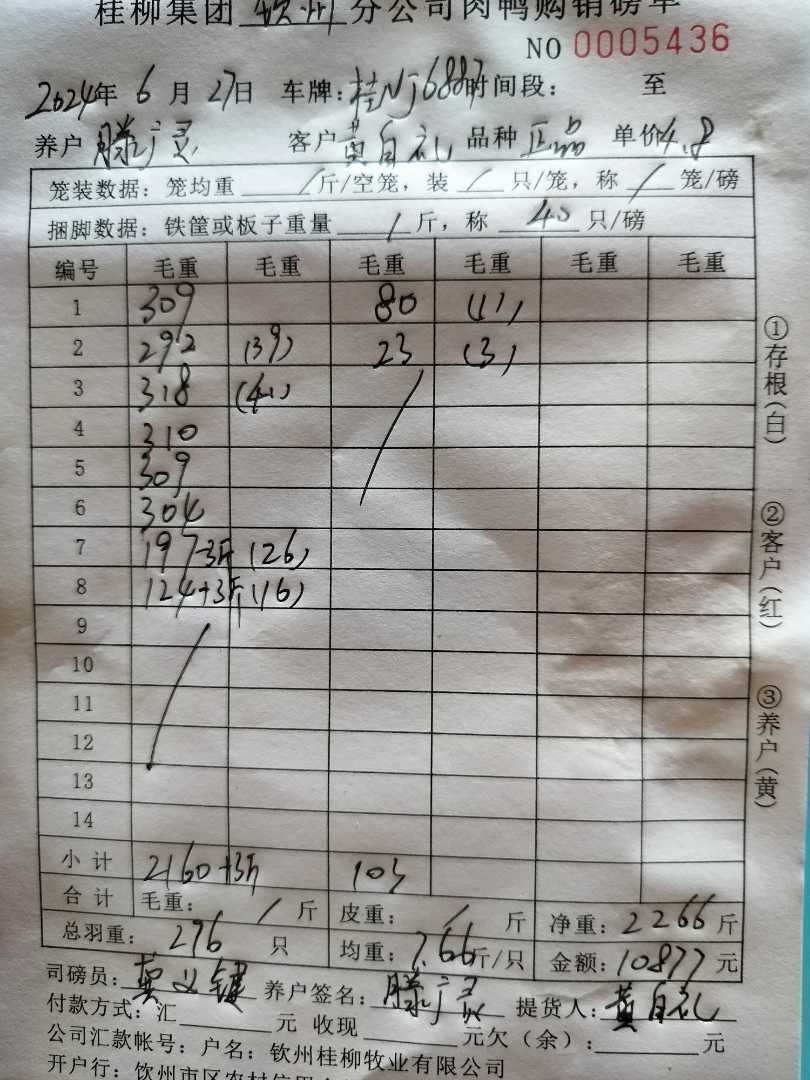 桂柳集团 钦州 分公司肉鸭购销磅单
NO 0005436
2024年 6 月 27日 车牌: 时间段: 至
养户 滕广灵 客户 黄自礼 品种 正品 单价4.8
笼装数据: 笼均重 / 斤/空笼, 装 / 只/笼, 称 / 笼/磅
捆脚数据: 铁筐或板子重量 / 斤, 称 40 只/磅
编号 毛重 毛重 毛重 毛重 毛重 毛重
1 309 80 (11)
2 292 (39) 23 (3)
3 318 (41)
4 310
5 309
6 304
7 197-3斤 (26)
8 124+3斤 (16)
9
10
11
12
13
14
小计 2160+3斤 103
合计 毛重: / 斤 皮重: / 斤 净重: 2266 斤
总羽重: 296 只 均重: 7.66斤/只 金额: 10877 元
司磅员: 养户签名: 滕广灵 提货人: 黄自礼
付款方式: 汇 元 收现 元欠(余): 元
公司汇款帐号: 户名: 钦州桂柳牧业有限公司
开户行: 钦州市区农村信用
①存根(白)
②客户(红)
③养户(黄)